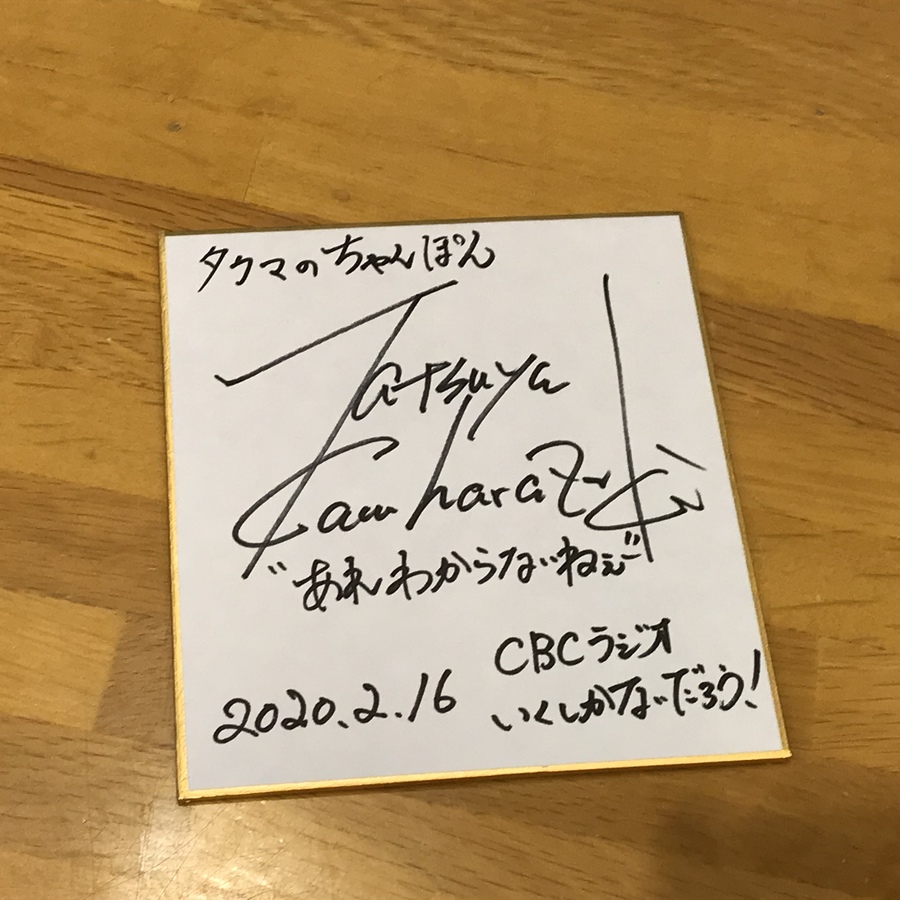 タクマのちゃんぽん
Tatsuya
"あれわからないねぇ"
CBCラジオ
いくしかないだろう!
2020.2.16